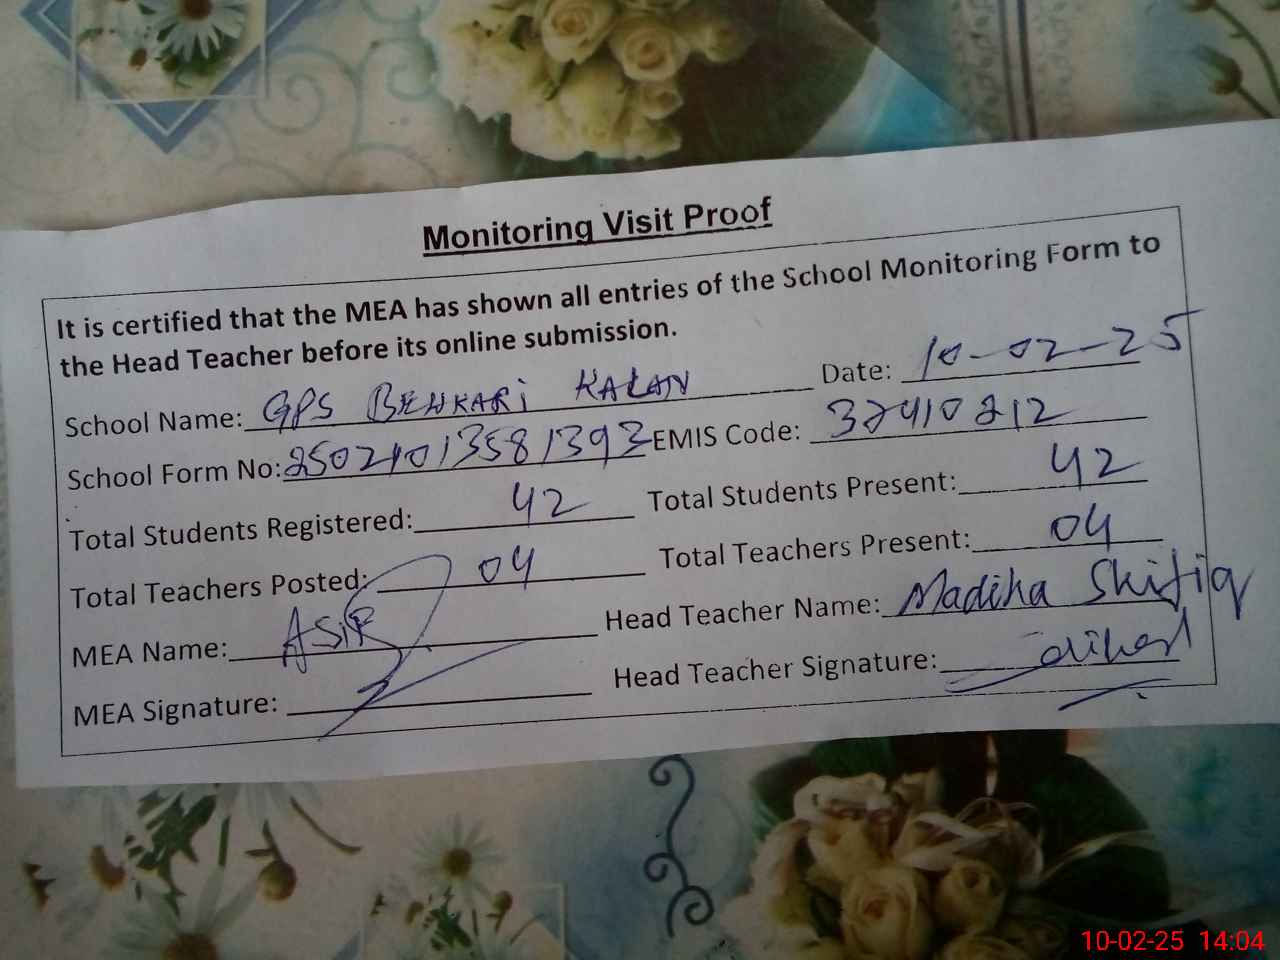 Monitoring Visit Proof
It is certified that the MEA has shown all entries of the School Monitoring Form to
the Head Teacher before its online submission.
School Name: GPS BEHKARI KALAN Date: 10-02-25
School Form No: 25021013581393 EMIS Code: 37410212
Total Students Registered: 42 Total Students Present: 42
Total Teachers Posted: 04 Total Teachers Present: 04
MEA Name: ASIF Head Teacher Name: Madiha Shifiq
MEA Signature: Head Teacher Signature:
10-02-25 14:04